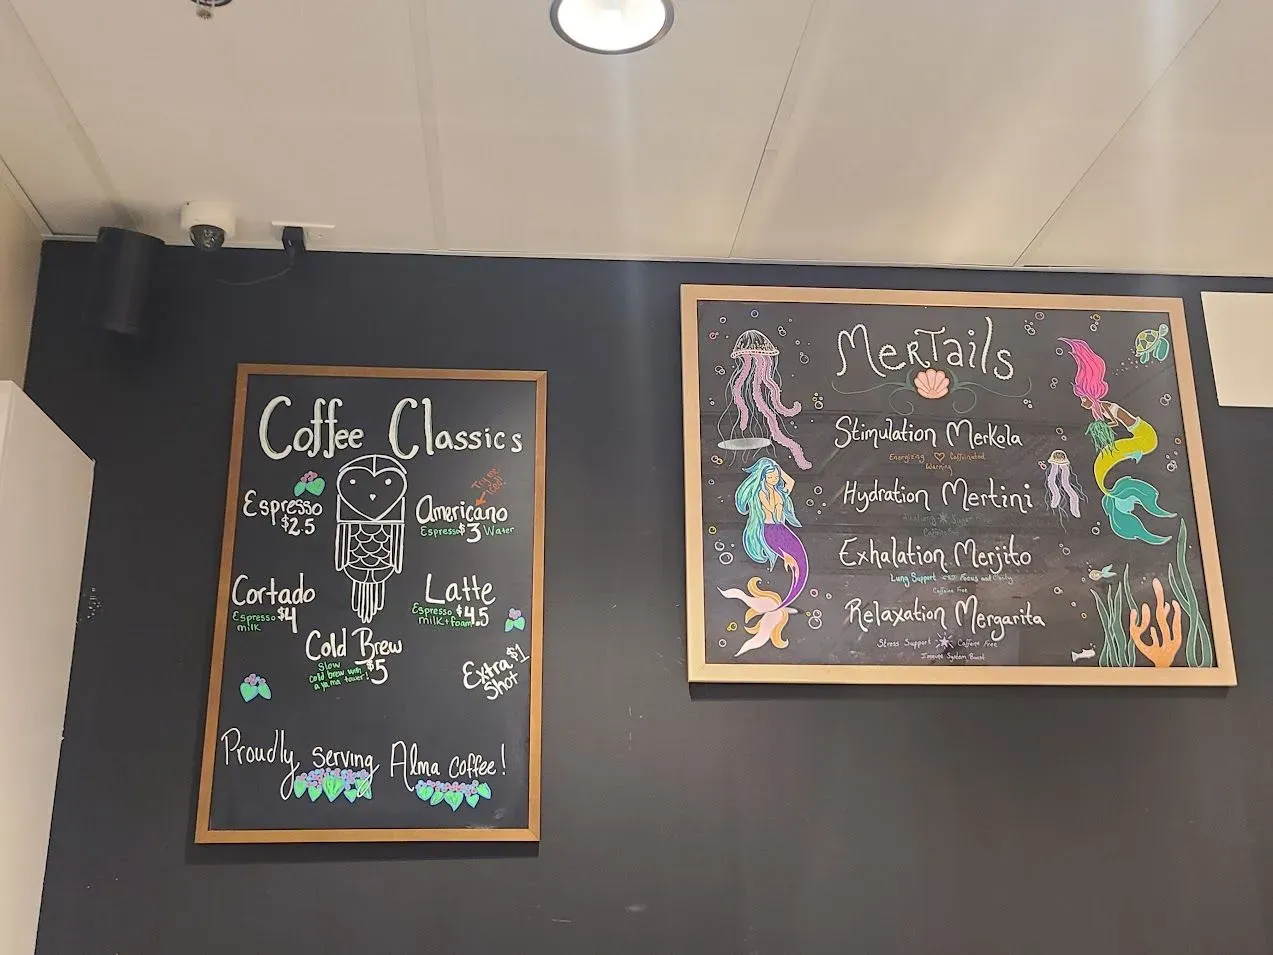 Coffee Classics
Espresso
$2.5
Try me Iced!
Americano
Espresso $3 Water
Cortado
Espresso $4
milk
Latte
Espresso $4.5
milk + foam
Cold Brew
Slow $5
cold brew with
a yama tower!
Extra $1
Shot
Proudly serving Alma coffee!
MerTails
Stimulation Merkola
Energizing Caffeinated
Warming
Hydration Mertini
Caffeine Free
Exhalation Merjito
Lung Support Focus and Clarity
Caffeine Free
Relaxation Mergarita
Stress Support Caffeine Free
Immune System Boost